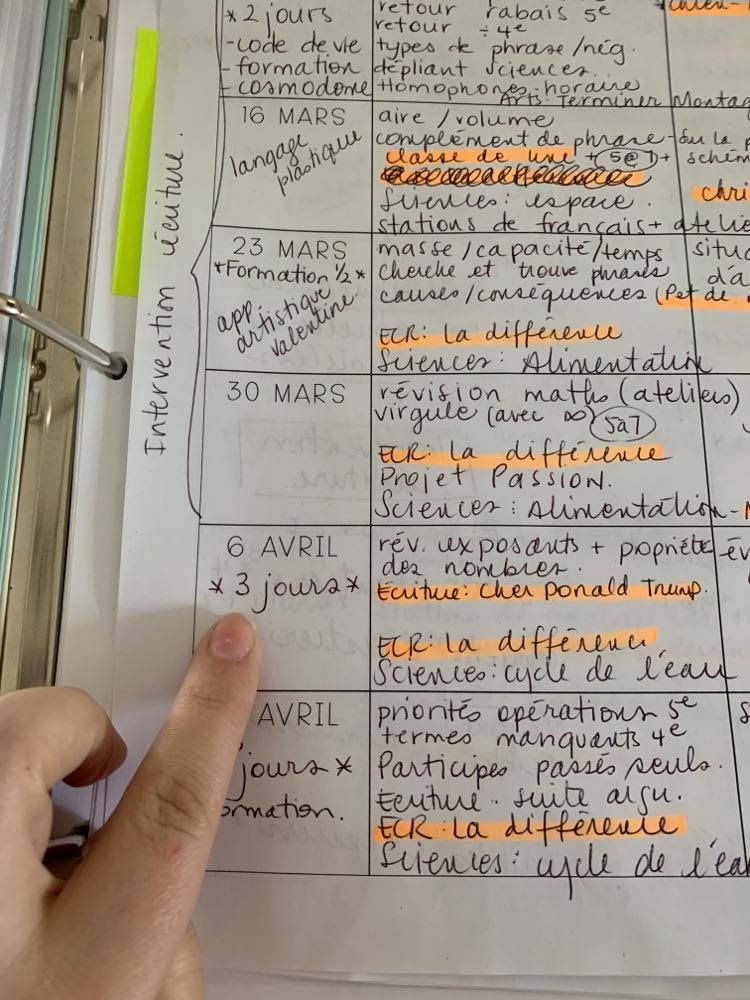 Intervention écriture.
* 2 jours
- code de vie
- formation
- cosmodome
retour rabais 5e
retour ÷ 4e
types de phrase/nég.
dépliant sciences..
Homophones-horaire
Arts: Terminer Montag
16 MARS
langage
plastique
aire / volume
complément de phrase - Sur la p
classe de une + 5@7 + schém
chri
Sciences: espace.
stations de français + atelie
23 MARS
*Formation ½*
app.
artistique
Valentine
masse/capacité/temps situa
cherche et trouve phrases d'a
causes/conséquences (Pet de
ECR: La différence
Sciences: Alimentation
30 MARS
révision maths (ateliers)
virgule (avec ∞) 5à7
ECR: La différence
Projet Passion.
Sciences: Alimentation -
6 AVRIL
* 3 jours *
rév. exposants + propriété év
des nombres.
Écriture: Cher Donald Trump.
ECR: La différence
Sciences: cycle de l'eau
AVRIL
jours *
ormation.
priorités opérations 5e
termes manquants 4e
Participes passés seuls.
Écriture. suite argu.
ECR: La différence
Sciences: cycle de l'eau